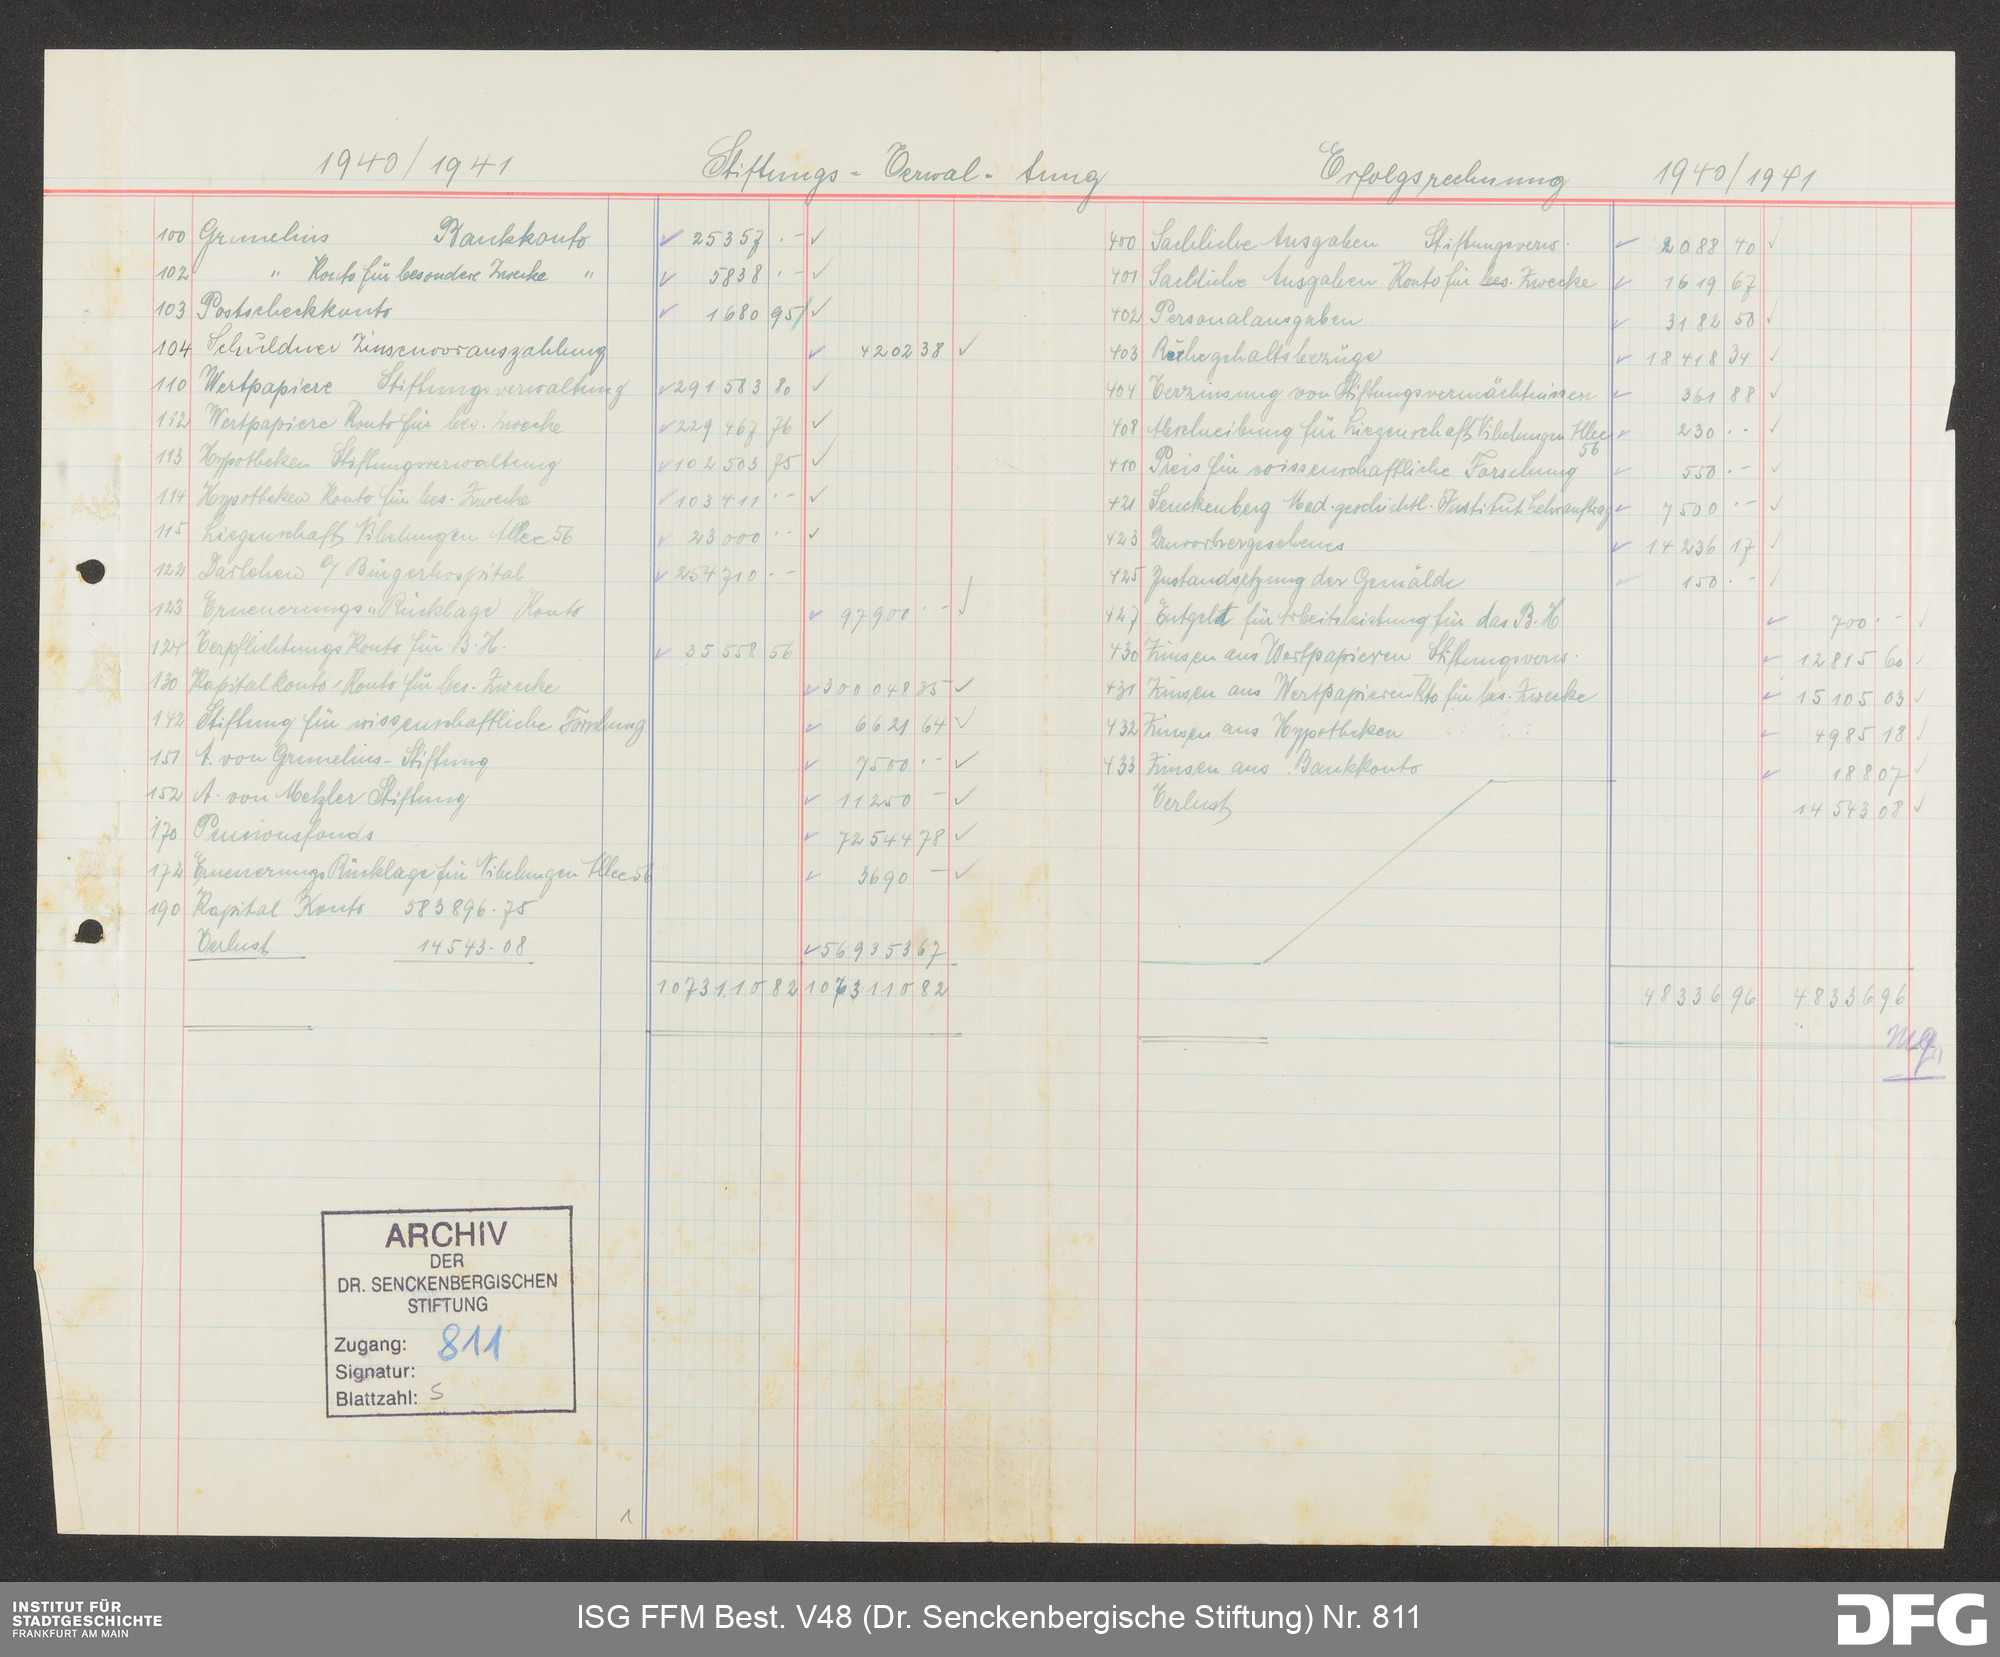 1940/1941 Stiftungs - Verwal - tung Erfolgsrechnung 1940/1941
100 Grunelius Bankkonto 25357 . -
102 " Konto für besondere Zwecke " 5838 . -
103 Postscheckkonto 1680 95
104 Schuldner Zinsenvorauszahlung 4202 38
110 Wertpapiere Stiftungsverwaltung 291583 80
112 Wertpapiere Konto für bes. Zwecke 229467 76
113 Hypotheken Stiftungsverwaltung 102503 75
114 Hypotheken Konto für bes. Zwecke 103411 . -
115 Liegenschaft Nibelungen Allee 56 23000 . -
122 Darlehen a/ Bürgerhospital 254710 . -
123 Erneuerungs-Rücklage Konto 97900 . -
124 Verpflichtungs Konto für B.H. 35558 56
130 Kapitalkonto, Konto für bes. Zwecke 300048 35
142 Stiftung für wissenschaftliche Forschung 6621 64
151 A. von Grunelius-Stiftung 7500 . -
152 A. von Metzler Stiftung 11250 -
170 Pensionsfonds 72544 78
172 Erneuerungs Rücklage für Nibelungen Allee 56 3690 -
190 Kapital Konto 583896.75
Verlust 14543.08 569353 67
1073110 82 1073110 82
400 Sachliche Ausgaben Stiftungsverw. 2088 40
401 Sachliche Ausgaben Konto für bes. Zwecke 1619 67
402 Personalausgaben 3182 50
403 Ruhegehaltsbezüge 18418 34
404 Verzinsung von Stiftungsvermächtnissen 361 88
408 Abschreibung für Liegenschaft Nibelungen Allee 56 230 . -
410 Preis für wissenschaftliche Forschung 550 . -
421 Senckenberg Med. geschichtl. Institut Lehrauftrag 7500 . -
423 Unvorhergesehenes 14236 17
425 Instandsetzung der Gemälde 150 . -
427 Entgelt für Arbeitsleistung für das B.H 700 . -
430 Zinsen aus Wertpapieren Stiftungsverw. 12815 60
431 Zinsen aus Wertpapieren Kto für bes. Zwecke 15105 03
432 Zinsen aus Hypotheken 4985 18
433 Zinsen aus Bankkonto 188 07
Verlust 14543 08
48336 96 48336 96
ARCHIV
DER
DR. SENCKENBERGISCHEN
STIFTUNG
Zugang: 811
Signatur:
Blattzahl: 5
1
INSTITUT FÜR
STADTGESCHICHTE
FRANKFURT AM MAIN
ISG FFM Best. V48 (Dr. Senckenbergische Stiftung) Nr. 811
DFG